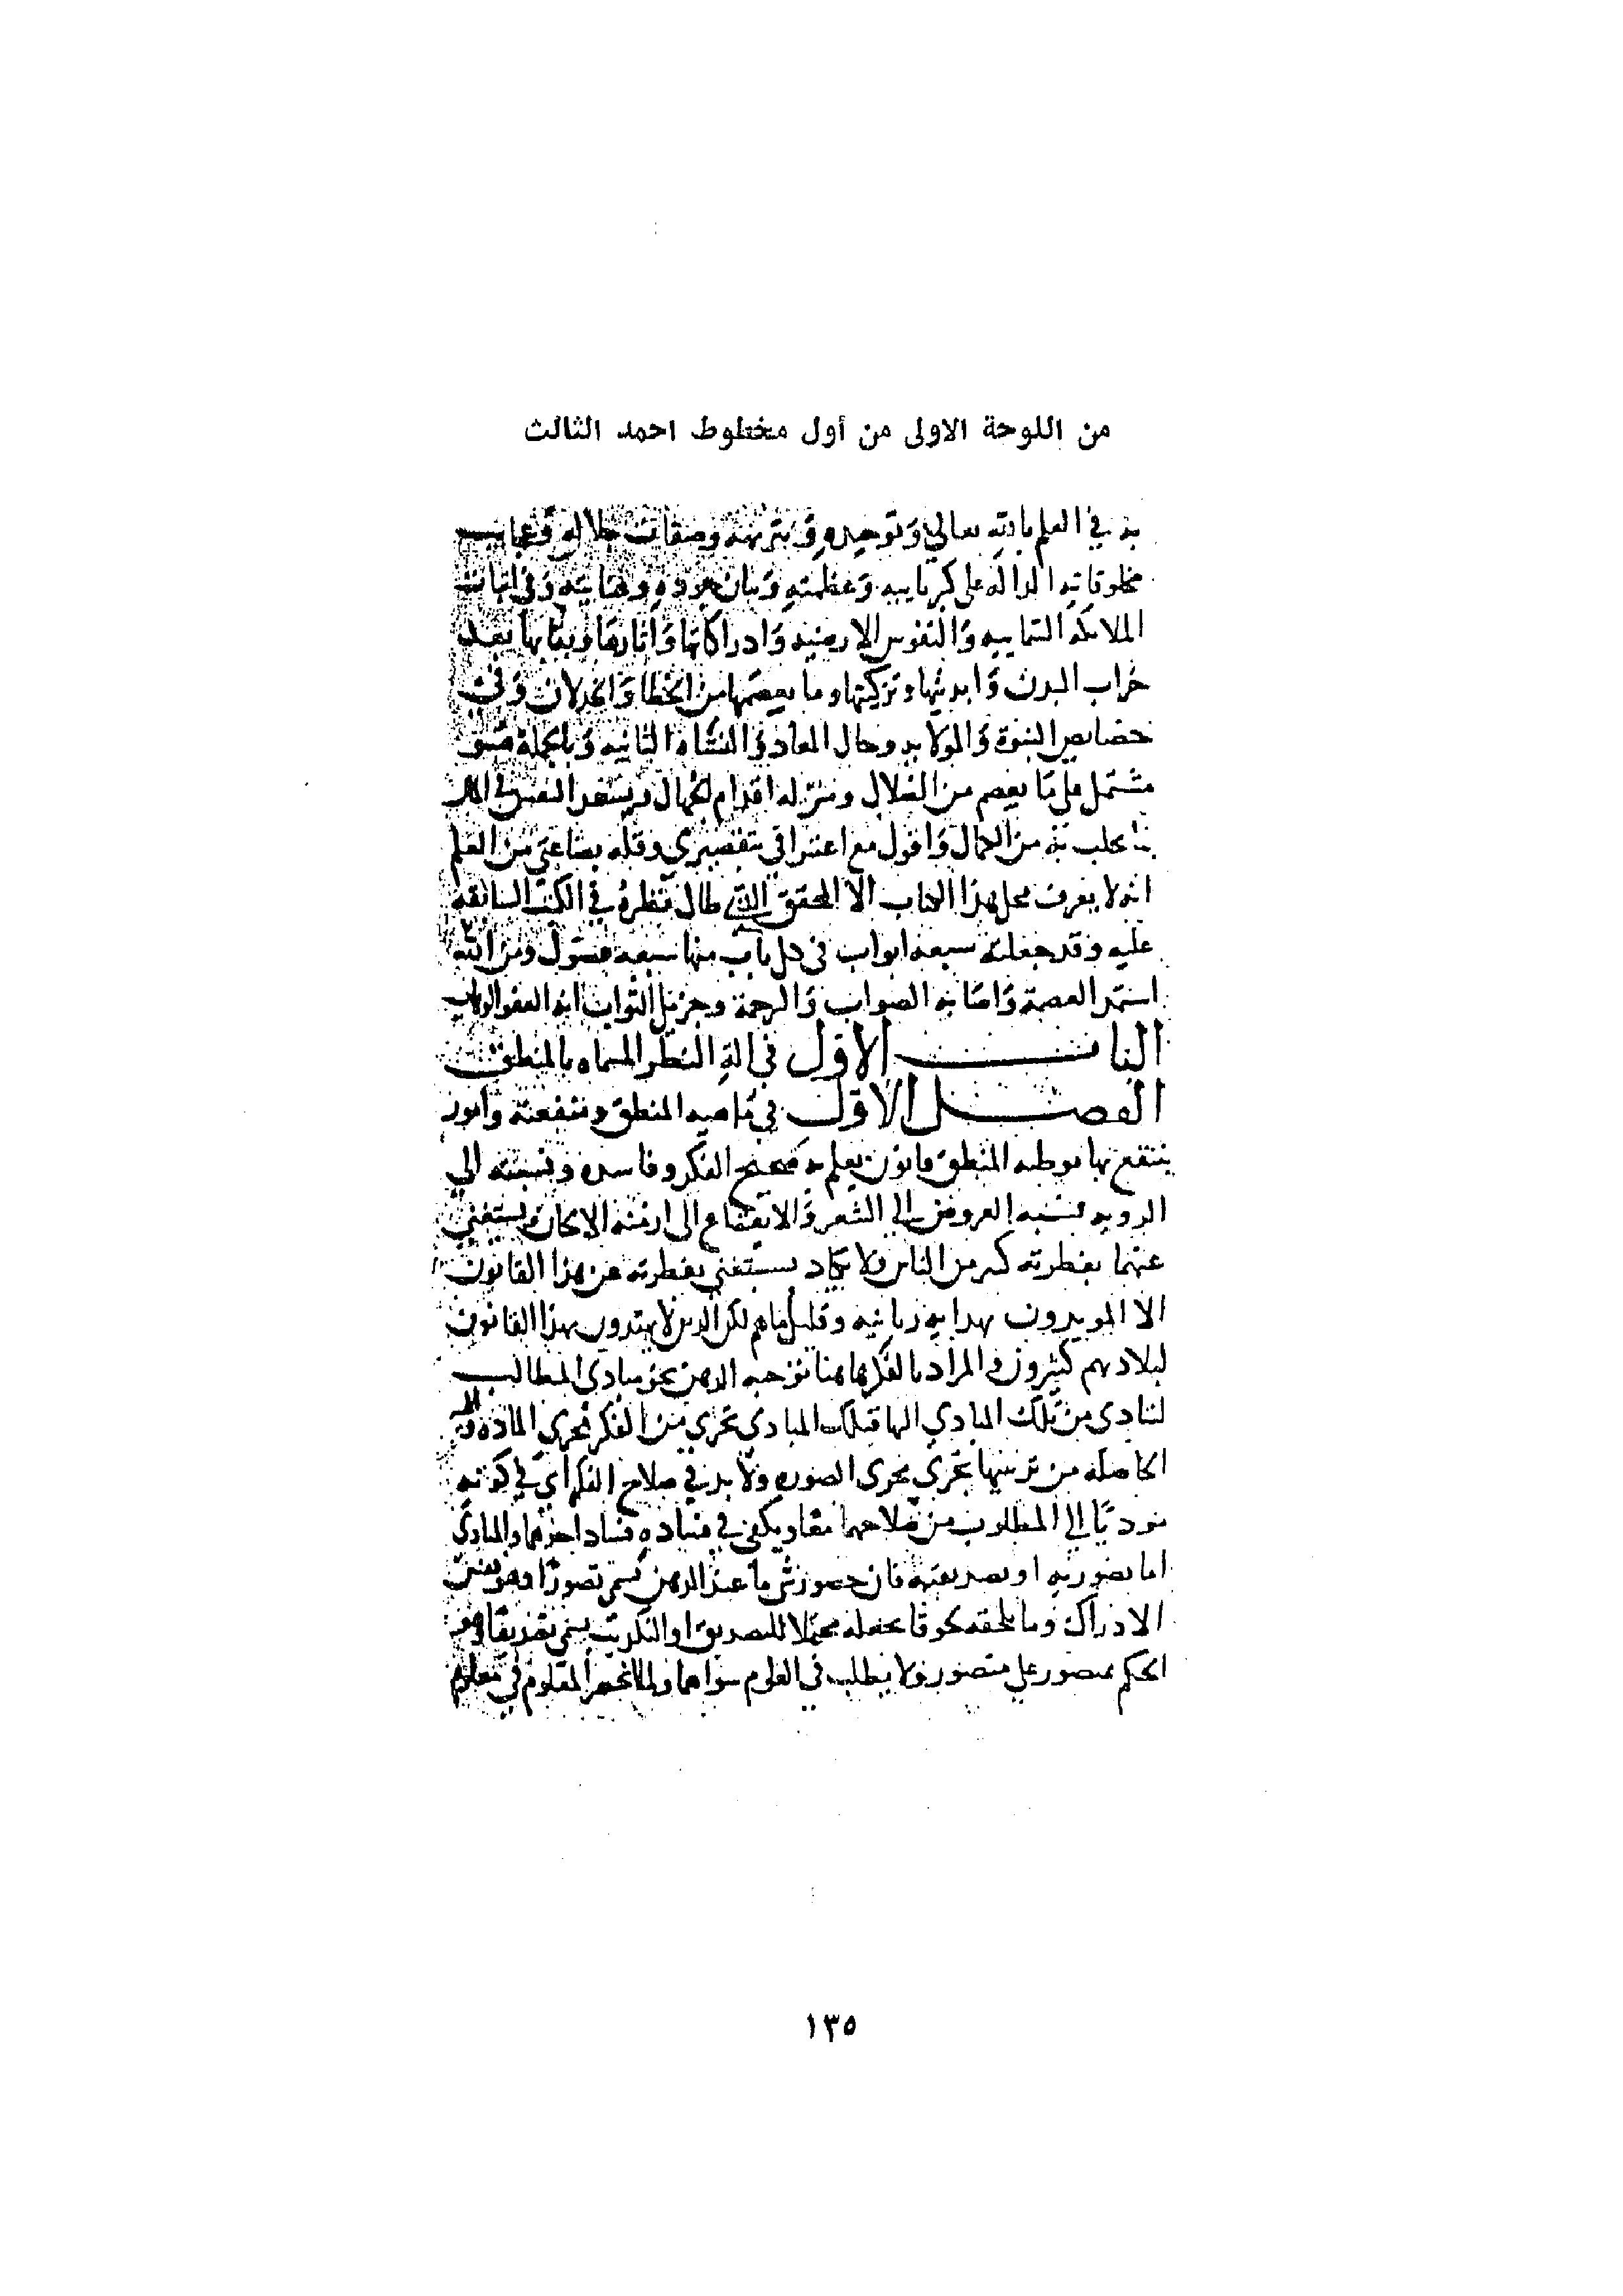 من اللوحة الاولى من أول مخطوط احمد الثالث
في العلم بالله تعالي وتوحيده وتنزيهه وصفات جلاله وعجايب
مخلوقاته الدالة على كبريايه وعظمته وبيان جوده وعنايته وفي اثبات
الملائكة السمايه والنفوس الارضيه وادراكاتها واثارها وبقايها بعد
خراب البدن وابديتها وتزكيتها وما يعصمها من الخطا والخذلان وفي
خصايص النبوة وحال المعاد والنشاه الثانيه وبالجملة فهو
مشتمل على ما يعصم من الضلال اقدام الجهال النفس
من الكمال واقول مع اعترافي بتقصيري وقلة بضاعتي من العلم
انه لا يعرف محل هذا الكتاب الا المحقق الذي طال نظره في الكتب السابقة
عليه وقد جعلته سبعه ابواب في كل باب منها سبعه فصول ومن الله
استمد العصمة واصابه الصواب والرحمة وجزيل الثواب انه العفو الوهاب
الباب الاول في الة النظر المسماه بالمنطق
الفصل الاول في ماهيه المنطق ومنفعته وامور
ينتفع بها موطيه المنطق قانون يعلم به صحيح الفكر وفاسده ونسبته الي
الرويه كنسبه العروض الي الشعر والايقاع الى ازمنه الالحان ويستغني
عنهما بفطرته كثير من الناس ولا يكاد يستغني بفطرته عن هذا القانون
الا المويدون بهدايه ربانيه وقليل ما هم لكن الذين لا يهتدون بهذا القانون
لبلادتهم كثيرون والمراد بالفكر هاهنا توجه الذهن نحو مبادي المطالب
لتنادى من تلك المبادي اليها فتلك المبادى تجري من الفكر مجرى المادة
الحاصلة من ترتيبها تجري مجرى الصوره ولا بد في صلاح الفكر اي في كونه
موديا الي المطلوب من صلاحهما معا ويكفي في فساده فساد احدهما والمبادي
اما تصوريه او تصديقيه فان حضور شي ما عند الذهن يسمى تصورا وهو نفس
الادراك وما يلحقه لحوقا يجعله محتملا للتصديق او التكذيب يسمى تصديقا وهو
الحكم بمتصور علي متصور ولا يطلب في العلوم سواهما ولما انحصر المعلوم في معلوم
١٣٥